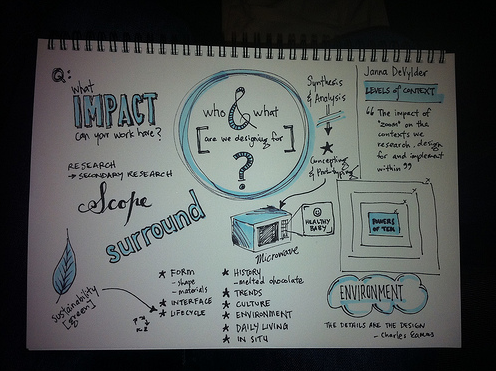 Q:
What
IMPACT
can your work have?
RESEARCH
→ SECONDARY RESEARCH
Scope
surround
sustainability
[green]
who & what
[are we designing for]
?
Synthesis
& Analysis
Concepting
& Prototyping
HEALTHY
BABY
Microwave
★ FORM
- shape
- materials
★ INTERFACE
★ LIFECYCLE
★ HISTORY
- melted chocolate
★ TRENDS
★ CULTURE
★ ENVIRONMENT
★ DAILY LIVING
★ IN SITU
Janna DeVylder
LEVELS of CONTEXT
"The impact of
"zoom" on the
contexts we
research, design
for and implement
within"
POWERS
OF TEN
ENVIRONMENT
THE DETAILS ARE THE DESIGN
- Charles Eames